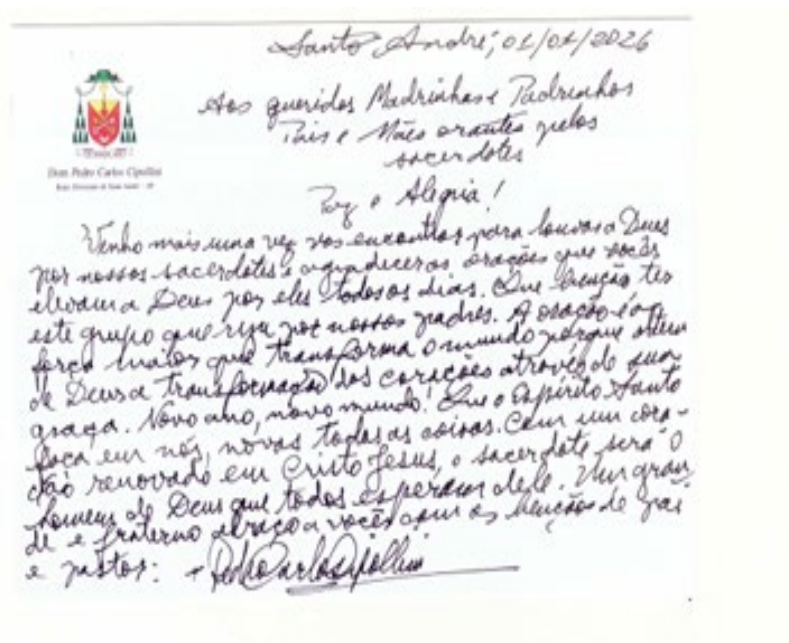 Santo André, 01/01/2026
Aos queridos Madrinhas e Padrinhos
Pais e Mães orantes pelos
sacerdotes
Paz e Alegria!
Dom Pedro Carlos Cipollini
Venho mais uma vez vos encontrar para louvar a Deus
por nossos sacerdotes e agradecer as orações que vocês
elevam a Deus por eles todos os dias. Que benção ter
este grupo que reza por nossos padres. A oração é a
força maior que transforma o mundo porque obtem
de Deus a transformação dos corações através de sua
graça. Novo ano, novo mundo! Que o Espírito Santo
faça em nós, novas todas as coisas. Com um cora-
ção renovado em Cristo Jesus, o sacerdote será o
homem de Deus que todos esperam dele. Um gran
de e fraterno abraço a vocês com as bençãos de pai
e pastor: + Pedro Carlos Cipollini